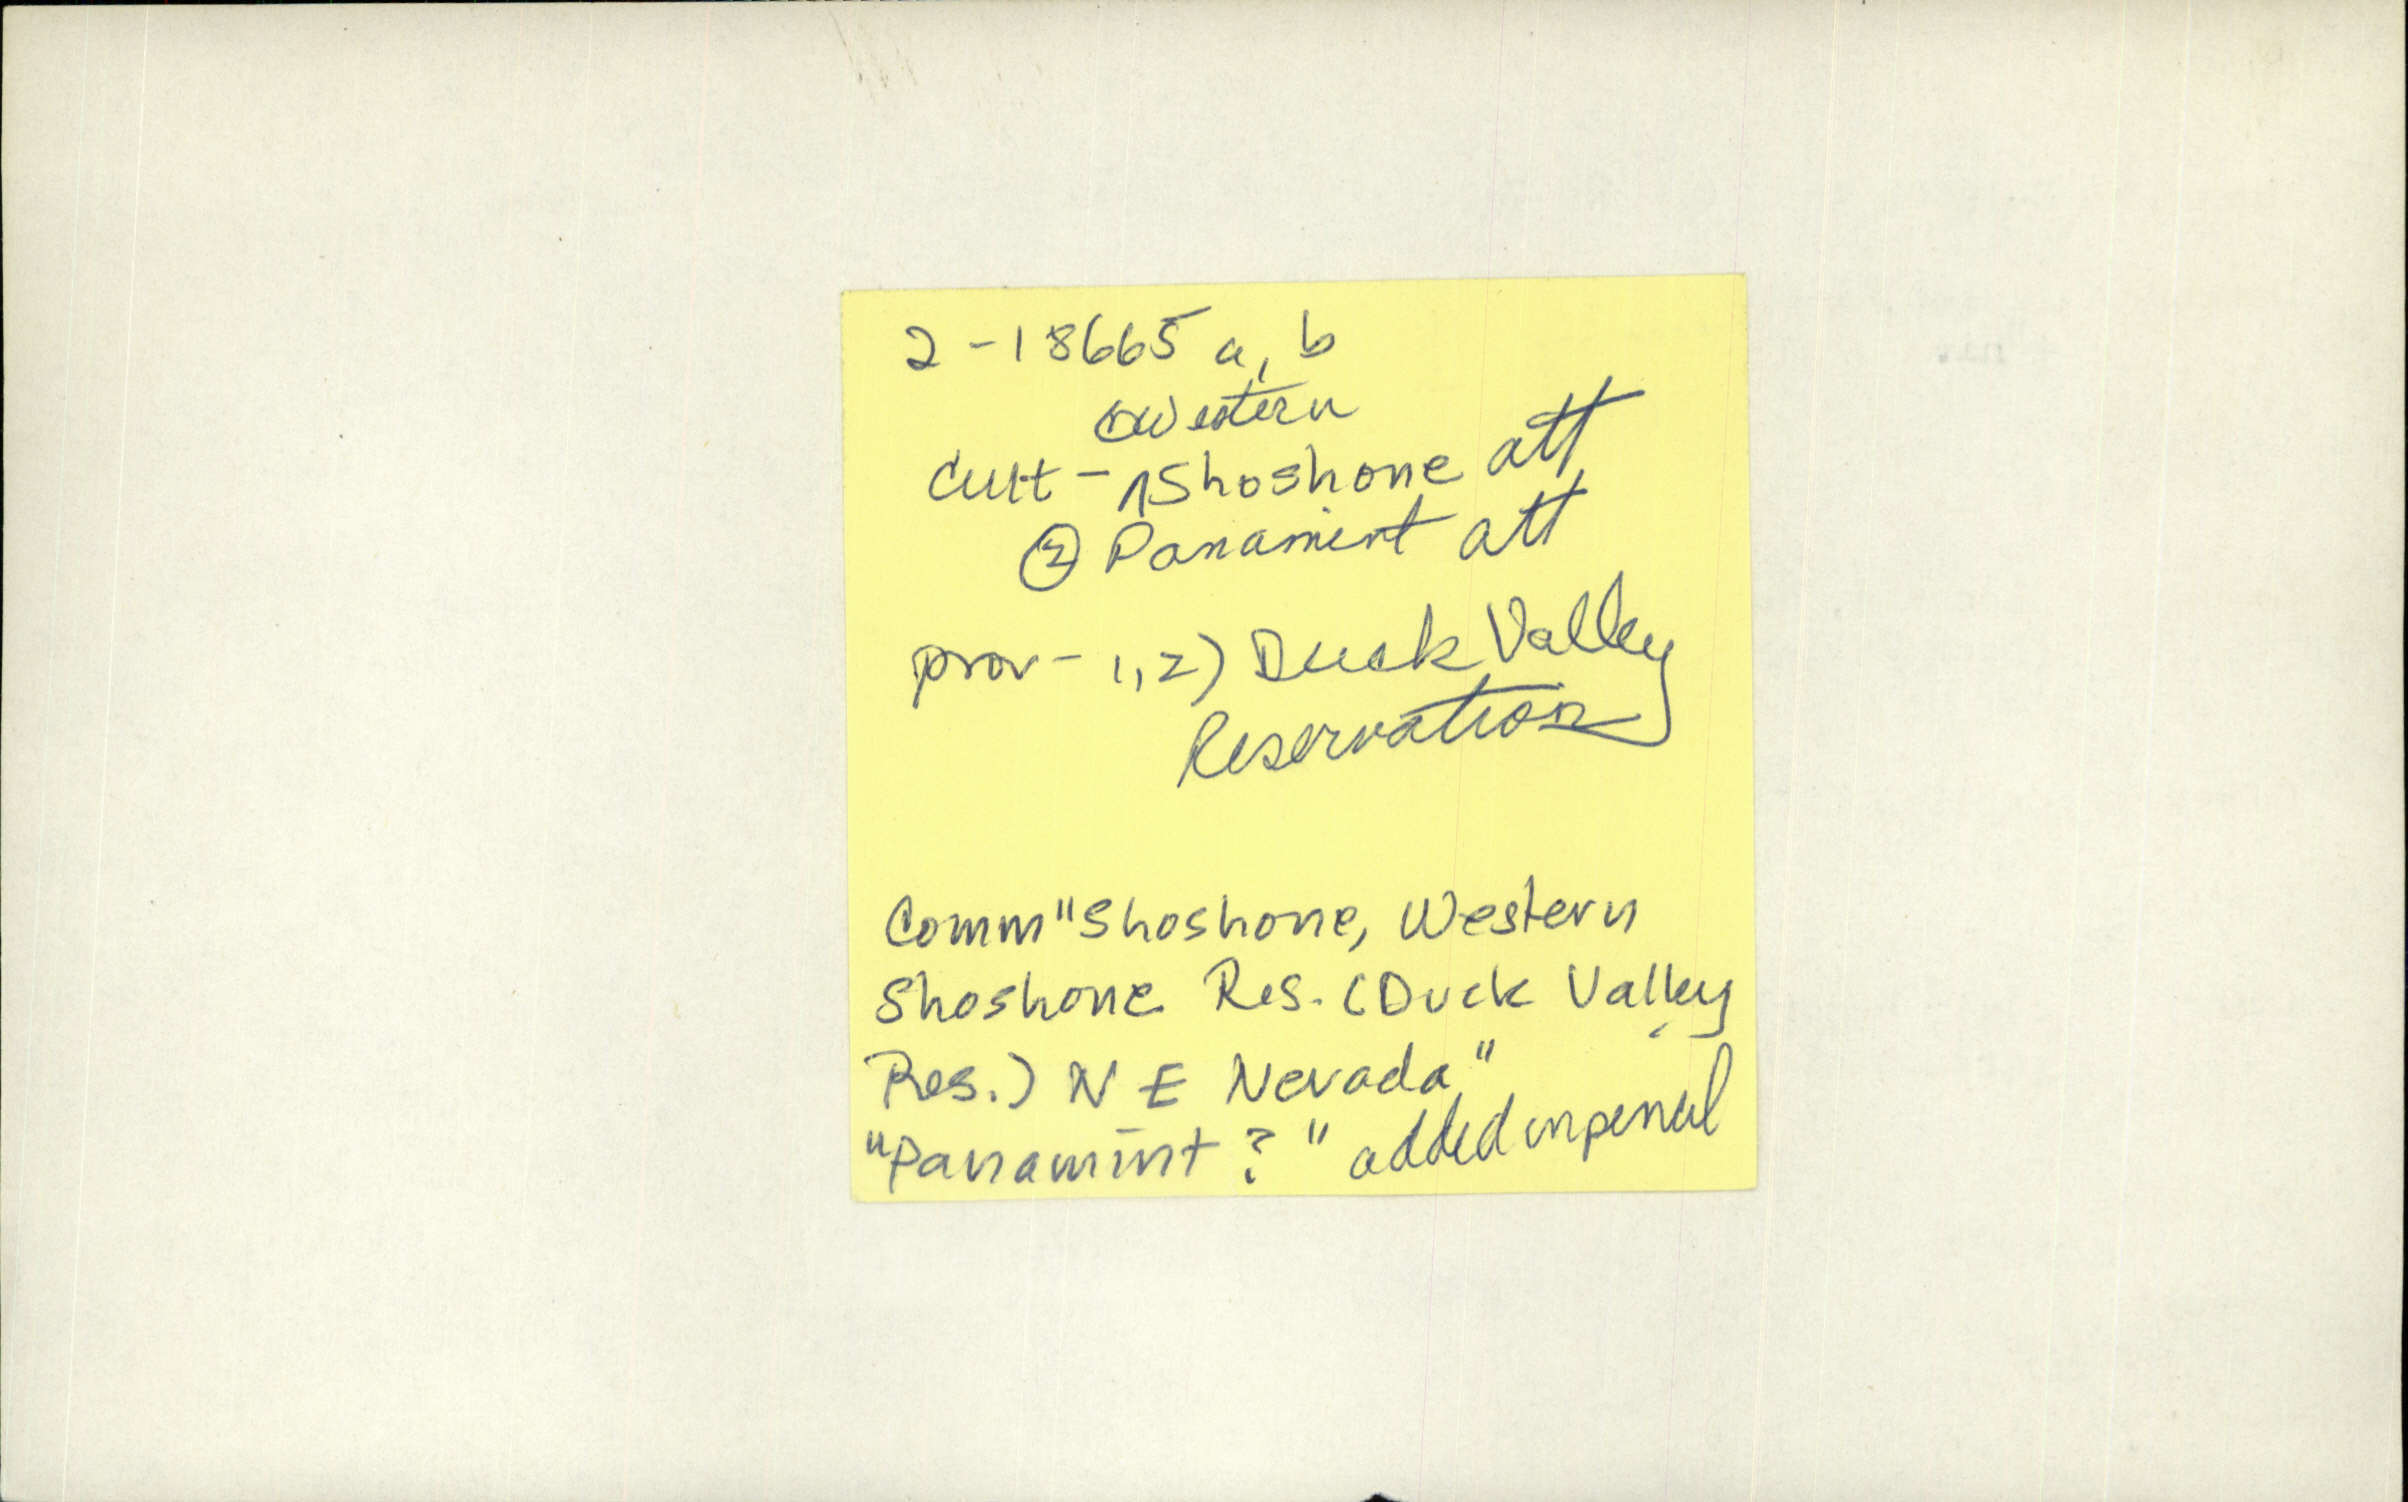 2-18665 a, b
① Western
Cult - ^Shoshone att
② Panamint att
prov - 1,2) Duck Valley
Reservation
Comm "Shoshone, Western
Shoshone Res. (Duck Valley
Res.) N E Nevada"
"Panamint ?" added in pencil